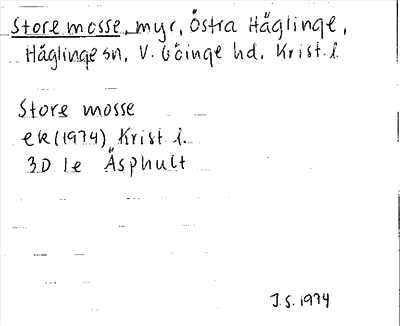 Store mosse, myr, Östra Häglinge,
Häglinge sn, V. Göinge hd, Krist. l.
Store mosse
ek (1974) Krist l.
3D 1e Äsphult
J.S. 1974